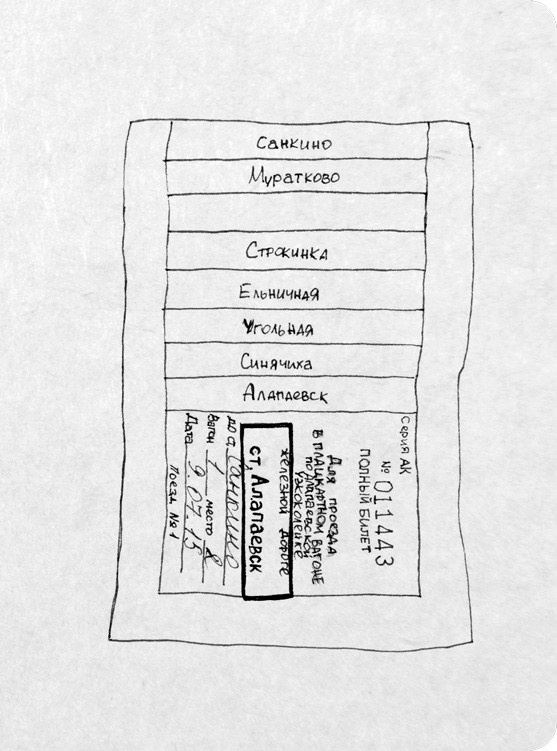 Санкино
Муратково
Строкинка
Ельничная
Угольная
Синячиха
Алапаевск
Серия АК
№ 011443
ПОЛНЫЙ БИЛЕТ
Для проезда
в плацкартном вагоне
по Алапаевской
узкоколейке
железной дороге
ст. Алапаевск
до ст. Санкино
Вагон 1 место 8
Дата 9.07.15
Поезд № 1